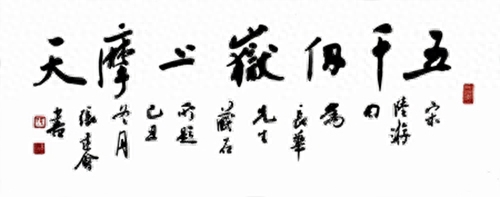 五千仞嶽上摩天
宋
陸游
句
為
長華
先生
藏石
所題
己丑
冬月
張
書